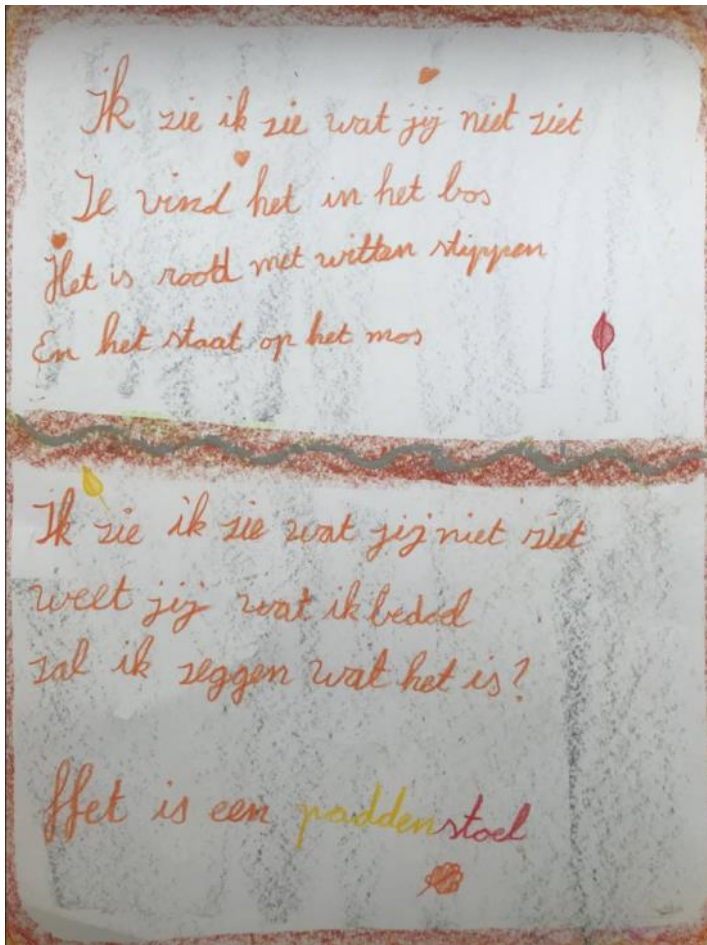 Ik zie ik zie wat jij niet ziet
Je vind het in het bos
Het is rood met witten stippen
En het staat op het mos
Ik zie ik zie wat jij niet ziet
weet jij wat ik bedoel
zal ik zeggen wat het is?
Het is een paddenstoel